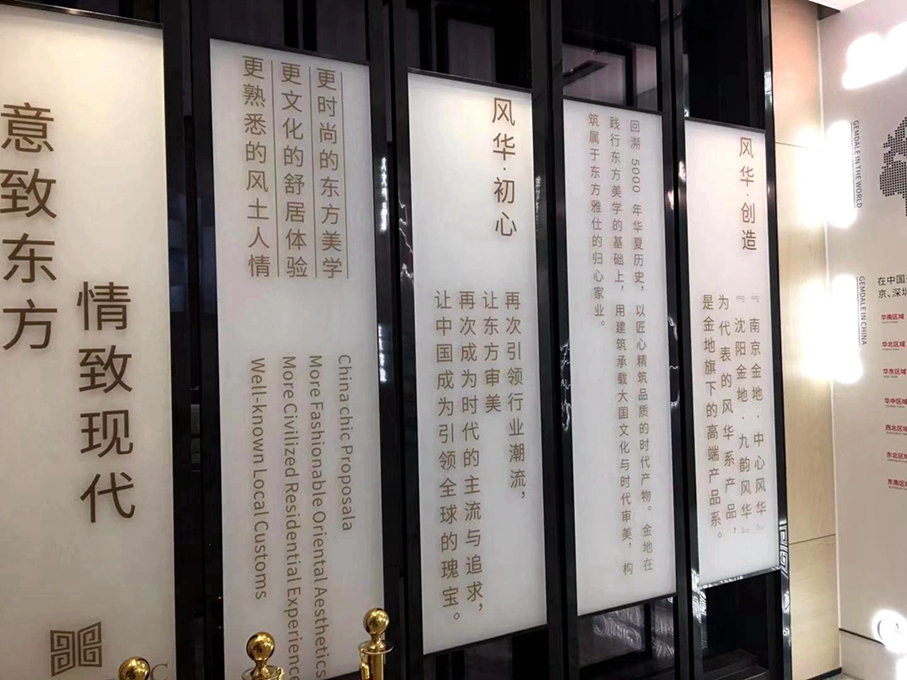 意致东方
情致现代
更时尚的东方美学
更文化的舒居体验
更熟悉的风土人情
China chic Proposala
More Fashionable Oriental Aesthetics
More Civilized Residential Experience
Well-known Local Customs
风华·初心
再次引领行业潮流，
让东方审美
再次成为时代的主流与追求，
让中国成为引领全球的瑰宝。
回溯 5000 年华夏历史，以匠心精筑品质的时代产物。金地在
践行东方美学的基础上，用建筑承载大国文化与时代审美，构
筑属于东方雅仕的归心家业。
风华 创造
『南京金地·中心风华』
『沈阳金地·九韵风华』
为代表的风华系产品，
是金地旗下的高端产品系。
GEMDALE IN THE WORLD
GEMDALE IN CHINA
在中国
京、深圳
华南区域
华北区域
华东区域
华中区域
西北区域
东北区域
东南区域